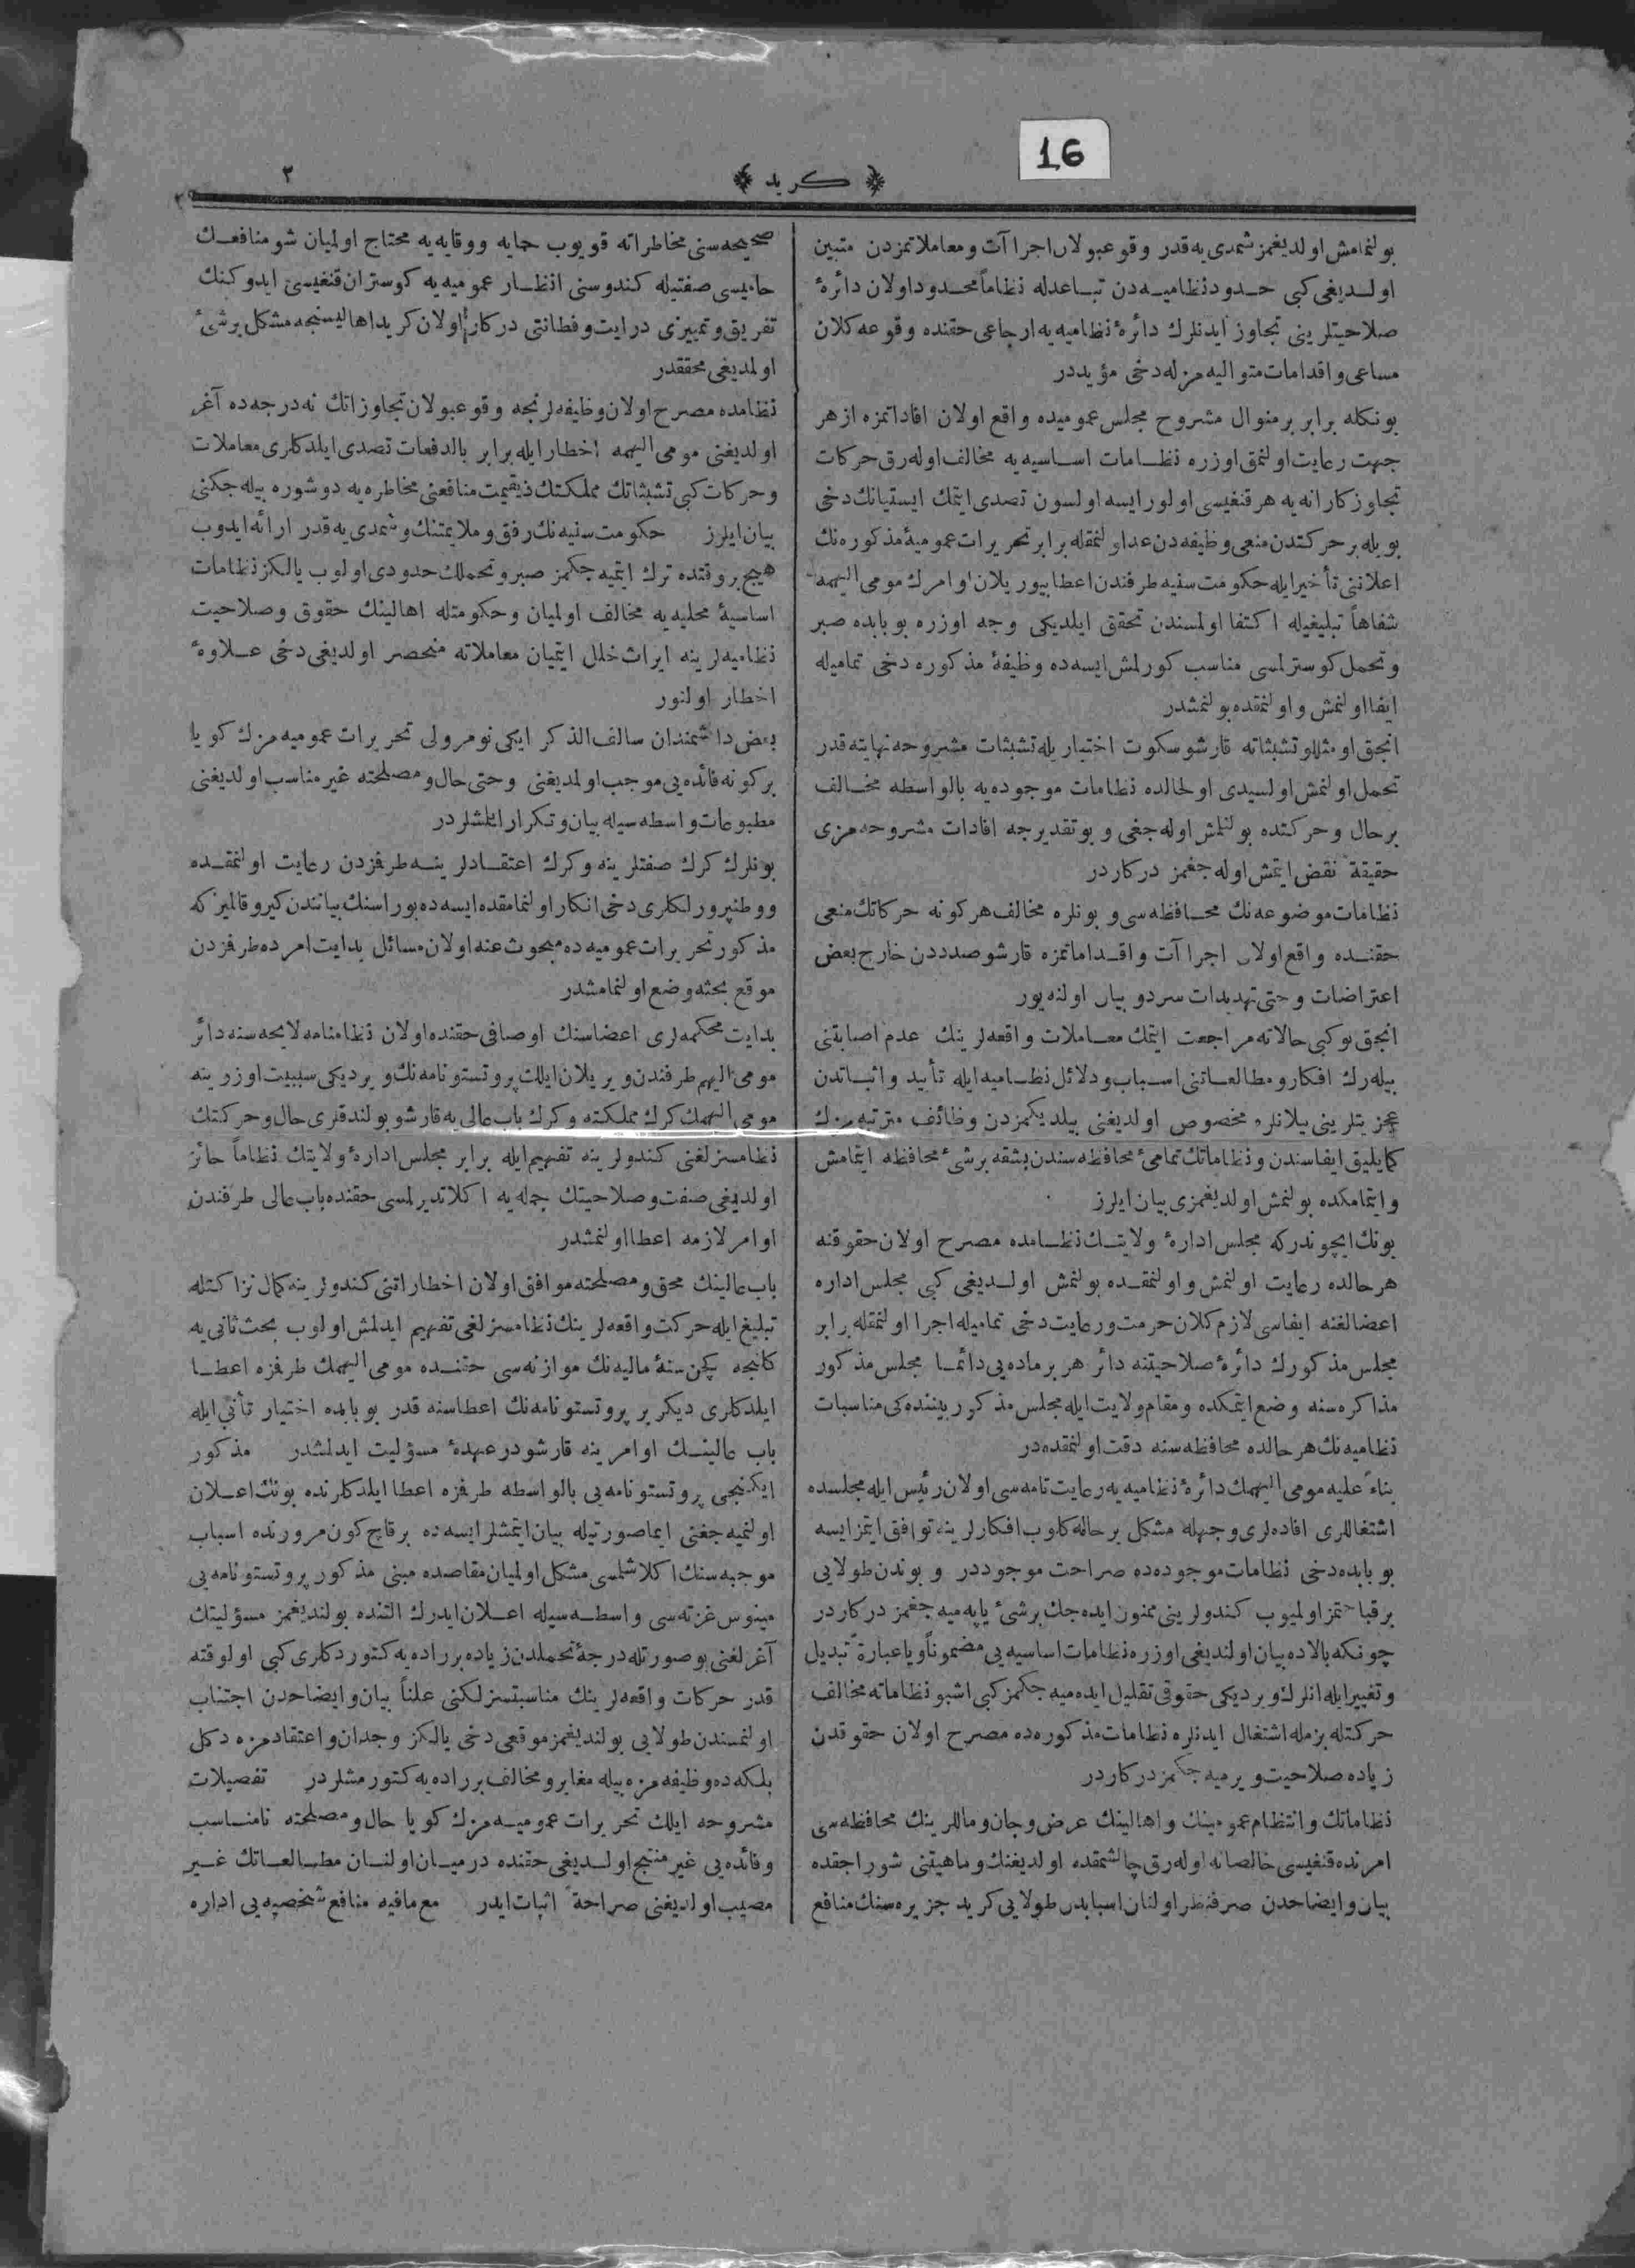 16
﴿ كريد ﴾
٢
بولنمامش اولديغمز شمدى يه قدر وقوعبولان اجراآت ومعاملاتمزدن متبين
اولــديغى كبى حــدود نظاميــه دن تبــاعدله نظاماً محــدود اولان دائرۀ
صلاحيتلرينى تجاوز ايدنلرك دائرۀ نظاميه يه ارجاعى حقنده وقوعه كلان
مساعى واقدامات متواليه مزله دخى مؤيددر
بونكله برابر بر منوال مشروح مجلس عموميده واقع اولان افاداتمزه از هر
جهت رعايت اولنمق اوزره نظــامات اســاسيه يه مخالف اوله رق حركات
تجاوزكارانه يه هر قنغيسى اولور ايسه اولسون تصدى ايتمك ايستيانك دخى
بويله بر حركتدن منعى وظيفه دن عد اولنمقله برابر تحريرات عموميۀ مذكوره نك
اعلاننى تأخير ايله حكومت سنيه طرفندن اعطا بيوريلان اوامرك مومى اليهمه
شفاهاً تبليغيله اكتفا اولمسندن تحقق ايلديكى وجه اوزره بو بابده صبر
وتحمل كوسترلمسى مناسب كورلمش ايسه ده وظيفۀ مذكوره دخى تماميله
ايفا اولنمش واولنمقده بولنمشدر
انجق او مثللو تشبثاته قارشو سكوت اختيار يله تشبثات مشروحه نهايته قدر
تحمل اولنمش اولسيدى اولحالده نظامات موجوده يه بالواسطه مخــالف
بر حال وحركتده بولنلمش اوله جغى و بو تقديرجه افادات مشروحه مزى
حقيقةً نقض ايتمش اوله جغمز دركاردر
نظامات موضوعه نك محــافظه سى و بونلره مخالف هر كونه حركاتك منعى
حقنــده واقع اولان اجراآت واقــداماتمزه قارشو صدددن خارج بعض
اعتراضات وحتى تهديدات سرد و بيان اولنه يور
انجق بو كبى حالاته مراجعت ايتمك معــاملات واقعه لرينك عدم اصابتنى
بيله رك افكار ومطالعــاتنى اسـباب ودلائل نظــاميه ايله تأييد واثبــاتدن
عجزيتلرينى بيلانلره مخصوص اولديغنى بيلديكمزدن وظائف مترتبه مزك
كمايليق ايفاسندن ونظاماتك تمامئ محافظه سندن بشقه برشئ محافظه ايتمامش
وايتمامكده بولنمش اولديغمزى بيان ايلرز
بونك ايچوندركه مجلس ادارۀ ولايتــك نظــامده مصرح اولان حقوقنه
هر حالده رعايت اولنمش واولنمقــده بولنمش اولــديغى كبى مجلس اداره
اعضالغنه ايفاسى لازم كلان حرمت ورعايت دخى تماميله اجرا اولنمقله برابر
مجلس مذكورك دائرۀ صلاحيتنه دائر هر بر ماده يى دائمــا مجلس مذكور
مذاكره سنه وضع ايتمكده ومقام ولايت ايله مجلس مذكور بيننده كى مناسبات
نظاميه نك هر حالده محافظه سنه دقت اولنمقده در
بناءً عليه مومى اليهمك دائرۀ نظاميه يه رعايت تامه سى اولان رئيس ايله مجلسده
اشتغاللرى افاده لرى وجهله مشكل بر حاله كلوب افكارلرينه توافق ايتمز ايسه
بو بابده دخى نظامات موجوده ده صراحت موجوددر و بوندن طولايى
بر قباحتمز اولميوب كندولرينى ممنون ايده جك برشئ ياپه ميه جغمز دركاردر
چونكه بالاده بيان اولنديغى اوزره نظامات اساسيه يى مضموناً وياعبارةً تبديل
وتغيير ايله انلرك ويرديكى حقوقى تقليل ايده ميه جكمز كبى اشبو نظاماته مخالف
حركتله بزمله اشتغال ايدنلره نظامات مذكوره ده مصرح اولان حقوقدن
زياده صلاحيت ويرميه جكمز دركاردر
نظاماتك وانتظام عمومينك واهالينك عرض وجان وماللرينك محافظه سى
امرنده قنغيسى خالصانه اوله رق چالشمقده اولديغنك وماهيتنى شوراجقده
بيان وايضاحدن صرفنظر اولنان اسبابدن طولايى كريد جزيره سنك منافع
صحيحه سنى مخاطراته قويوب حمايه ووقايه يه محتاج اولميان شو منافعــك
حاميسى صفتيله كندوسنى انظــار عموميه يه كوستران قنغيسئ ايدوكنك
تفريق وتمييزى درايت وفطانتى دركار اولان كريد اهاليسنجه مشكل برشئ
اولمديغى محققدر
نظامده مصرح اولان وظيفه لرنجه وقوعبولان تجاوزاتك نه درجه ده آغر
اولديغنى مومى اليهمه اخطار ايله برابر بالدفعات تصدى ايلدكلرى معاملات
وحركات كبى تشبثاتك مملكتك ذيقيمت منافعنى مخاطره يه دوشوره بيله جكنى
بيان ايلرز حكومت سنيه نك رفق وملايمتنك وشمدى يه قدر ارائه ايدوب
هيچ بر وقتده ترك ايتميه جكمز صبر وتحملك حدودى اولوب يالكز نظامات
اساسيۀ محليه يه مخالف اولميان وحكومتله اهالينك حقوق وصلاحيت
نظاميه لرينه ايراث خلل ايتميان معاملاته منحصر اولديغى دخى عــلاوۀ
اخطار اولنور
بعض دانشمندان سالف الذكر ايكى نومرولى تحريرات عموميه مزك كويا
بركونه فائده يى موجب اولمديغنى وحتى حال ومصلحته غير مناسب اولديغنى
مطبوعات واسطه سيله بيان وتكرار ايتمشلردر
بونلرك كرك صفتلرينه وكرك اعتقــادلرينــه طرفزدن رعايت اولنمقــده
ووطنپرورلكلرى دخى انكار اولنمامقده ايسه ده بوراسنك بيانندن كيرو قالميز كه
مذكور تحريرات عموميه ده مبحوث عنه اولان مسائل بدايت امرده طرفزدن
موقع بحثه وضع اولنمامشدر
بدايت محكمه لرى اعضاسنك اوصافى حقنده اولان نظامنامه لايحه سنه دائر
مومى اليهم طرفندن ويريلان ايلك پروتستونامه نك ويرديكى سببيت اوزرينه
مومى اليهمك كرك مملكته وكرك باب عالى يه قارشو بولندقلرى حال وحركتك
نظامسزلغنى كندولرينه تفهيم ايله برابر مجلس ادارۀ ولايتك نظاماً حائز
اولديغى صفت وصلاحيتك جمله يه اكلاتديرلمسى حقنده باب عالى طرفندن
اوامر لازمه اعطا اولنمشدر
باب عالينك محق ومصلحته موافق اولان اخطاراتنى كندولرينه كمال نزاكتله
تبليغ ايله حركت واقعه لرينك نظامسزلغى تفهيم ايدلمش اولوب بحث ثانى يه
كلنجه كچن سنۀ ماليه نك موازنه سى حقنــده مومى اليهمك طرفزه اعطــا
ايلدكلرى ديكر بر پروتستونامه نك اعطاسنه قدر بو بابده اختيار تأنى ايله
باب عالينــك اوامرينه قارشو درعهدۀ مسؤليت ايدلمشدر مذكور
ايكنجى پروتستونامه يى بالواسطه طرفزه اعطا ايلدكلرنده بونك اعــلان
اولنميه جغنى ايما صورتيله بيان ايتمشلر ايسه ده بر قاچ كون مرورنده اسباب
موجبه سنك اكلاشلمسى مشكل اولميان مقاصده مبنى مذكور پروتستونامه يى
مينوس غزته سى واسطــه سيله اعــلان ايدرك التنده بولنديغمز مسؤليتك
آغرلغنى بو صورتله درجۀ تحملدن زياده بر راده يه كتوردكلرى كبى او لوقته
قدر حركات واقعه لرينك مناسبتسزلكنى علناً بيان وايضاحدن اجتناب
اولنمسندن طولايى بولنديغمز موقعى دخى يالكز وجدان واعتقادمزه دكل
بلكه ده وظيفه مزه بيله مغاير ومخالف بر راده يه كتورمشلردر تفصيلات
مشروحه ايلك تحريرات عموميــه مزك كويا حال ومصلحته نامنــاسب
وفائده يى غير منتج اولــديغى حقنده درميــان اولنــان مطــالعــاتك غــير
مصيب اولديغنى صراحةً اثبات ايدر مع مافيه منافع شخصيه يى اداره